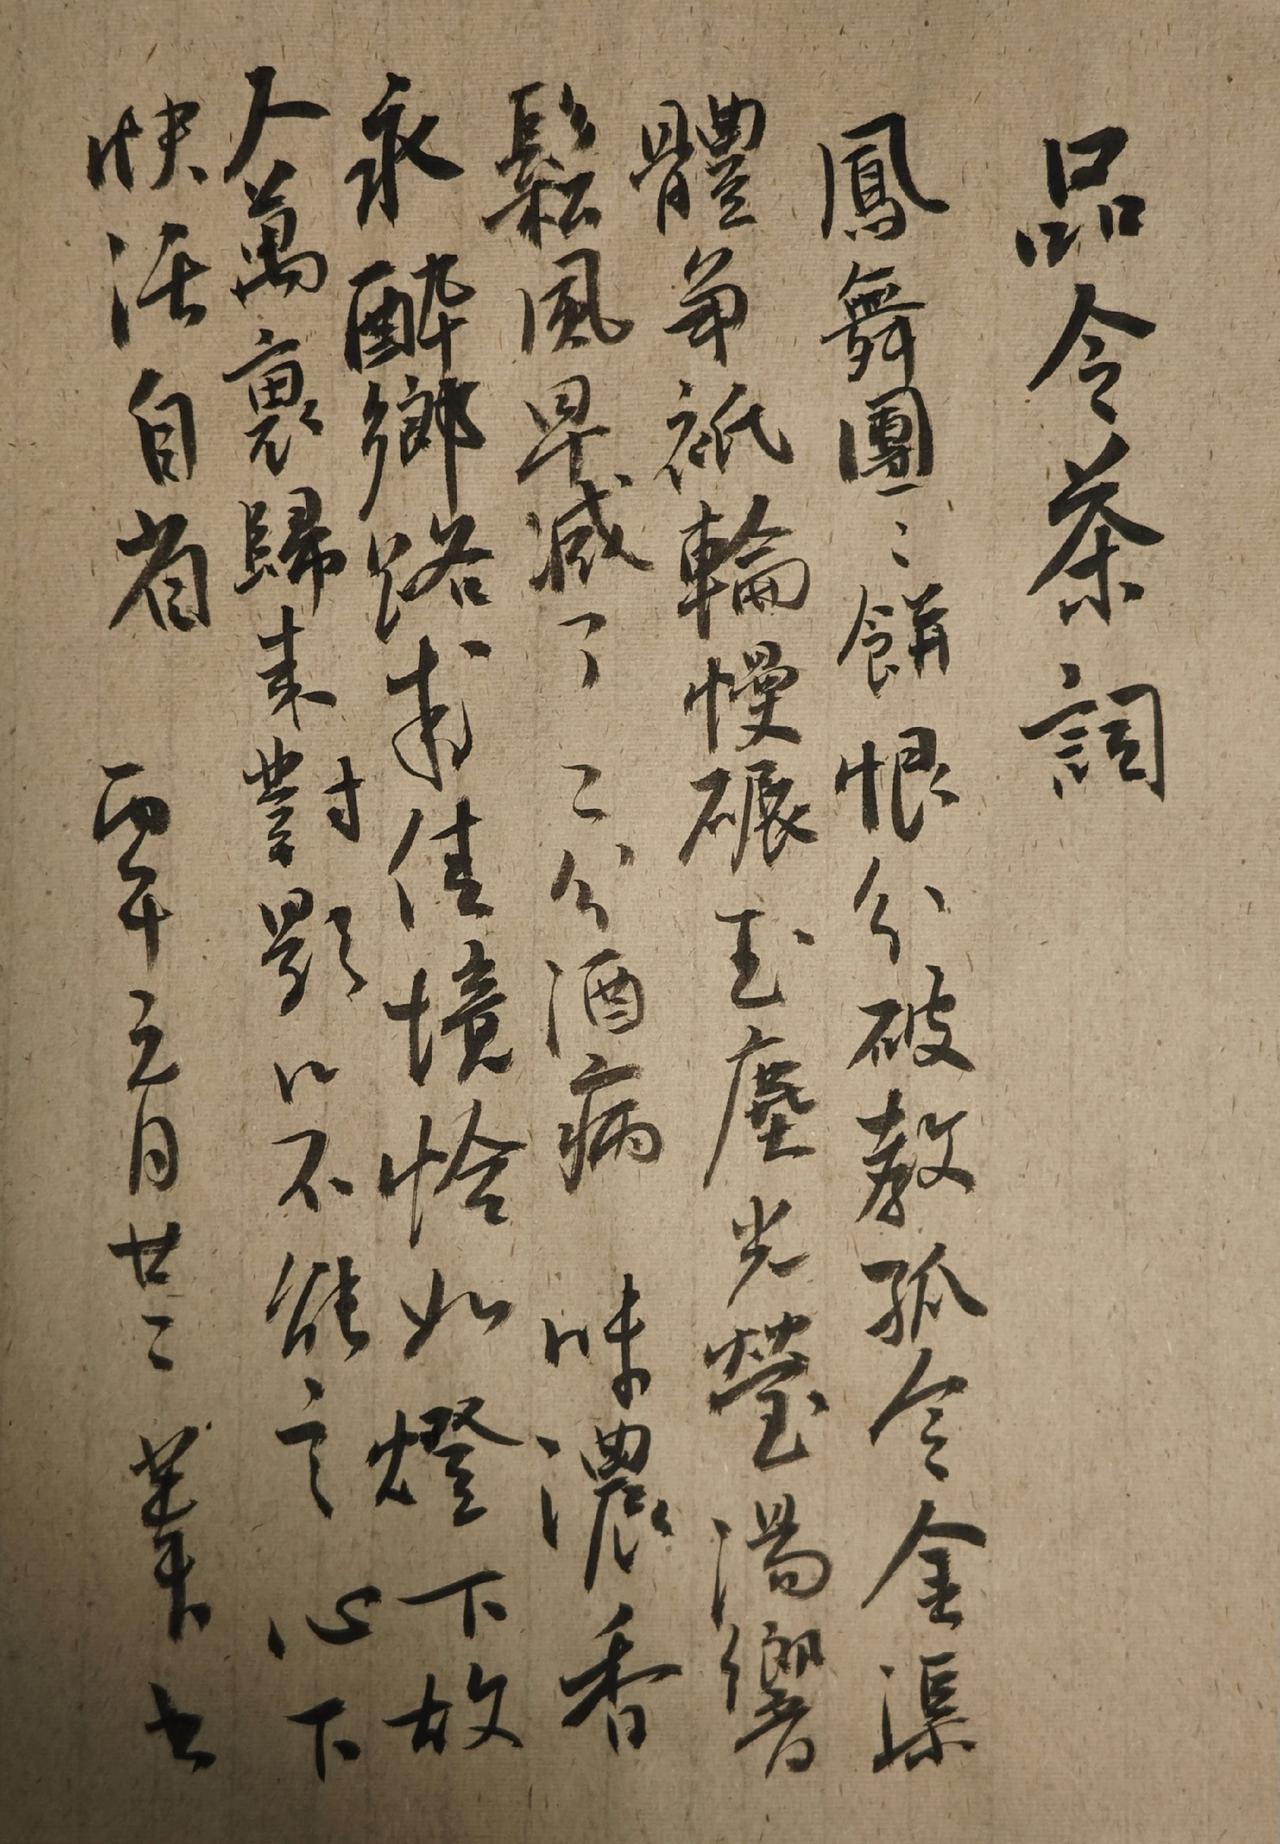 品令茶詞
鳳舞團〻餅恨分破教孤令金渠
體爭祇輪慢碾玉塵光瑩湯響
鬆風早減了二分酒病 味濃香
永醉鄉路成佳境恰如燈下故
人萬裏歸來對影口不能言心下
快活自省 丙午元月廿二 書